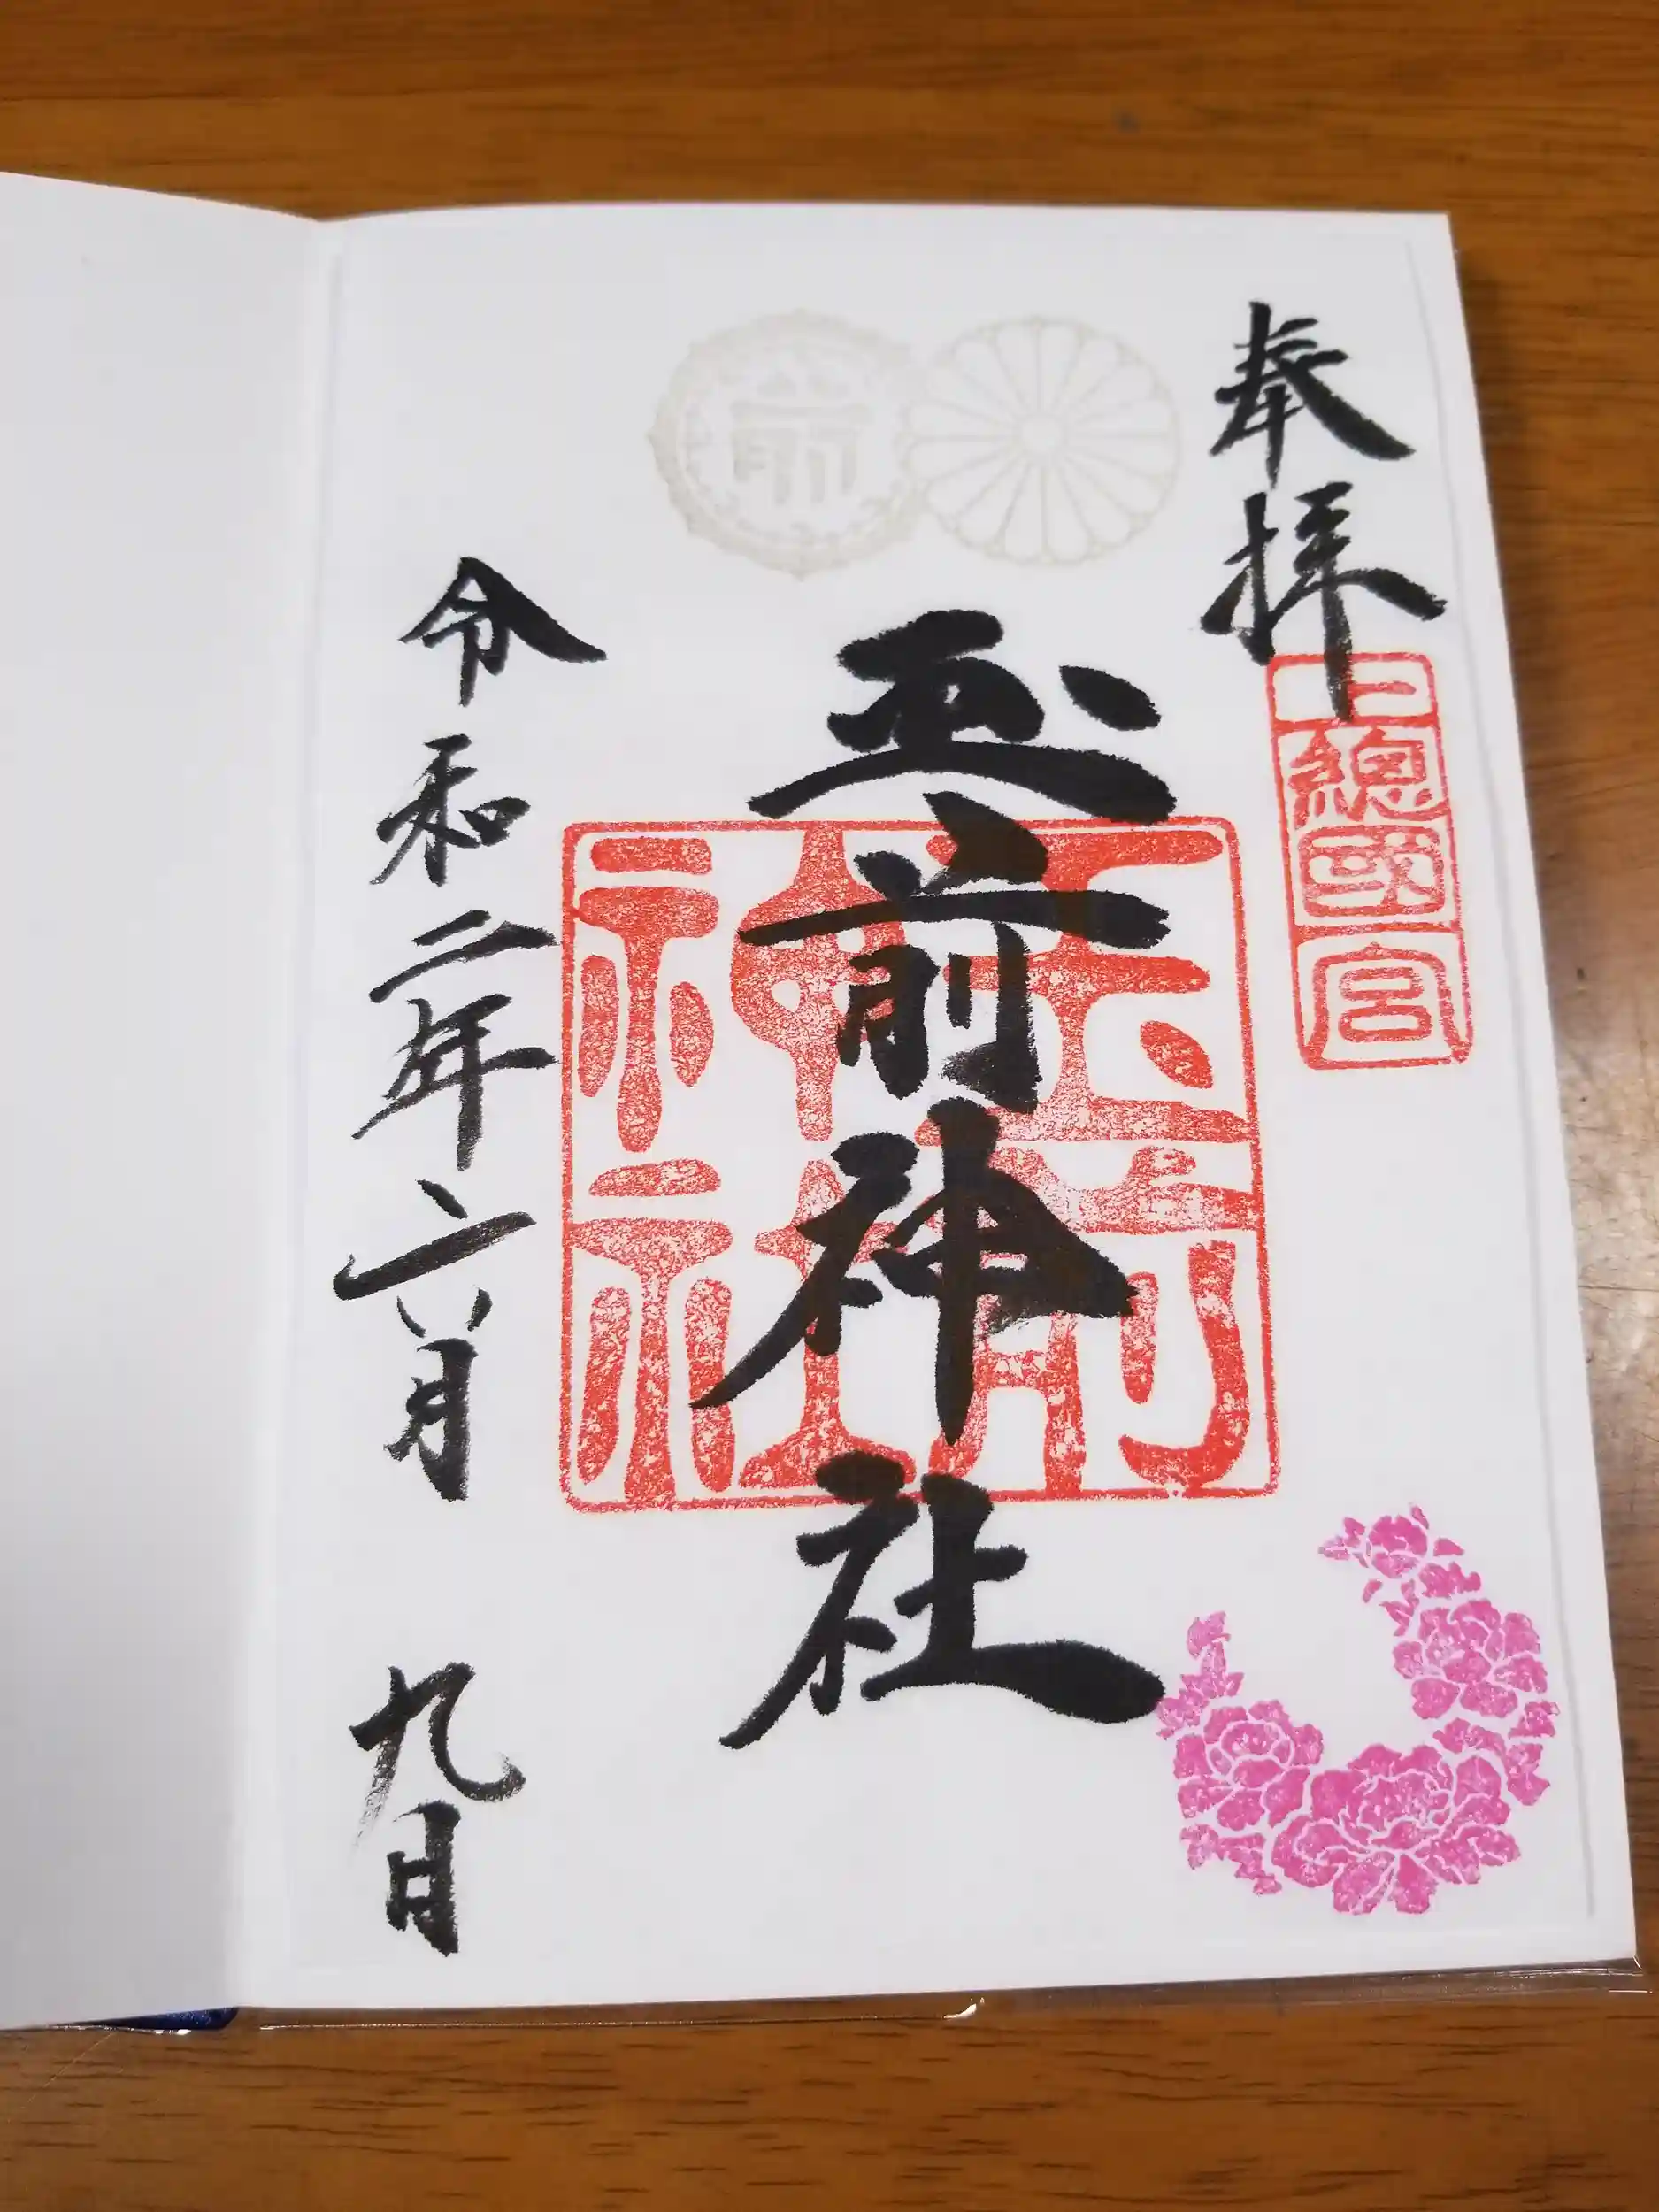 奉拝
上總國一宮
玉前神社
玉前神社
前
令和二年六月九日